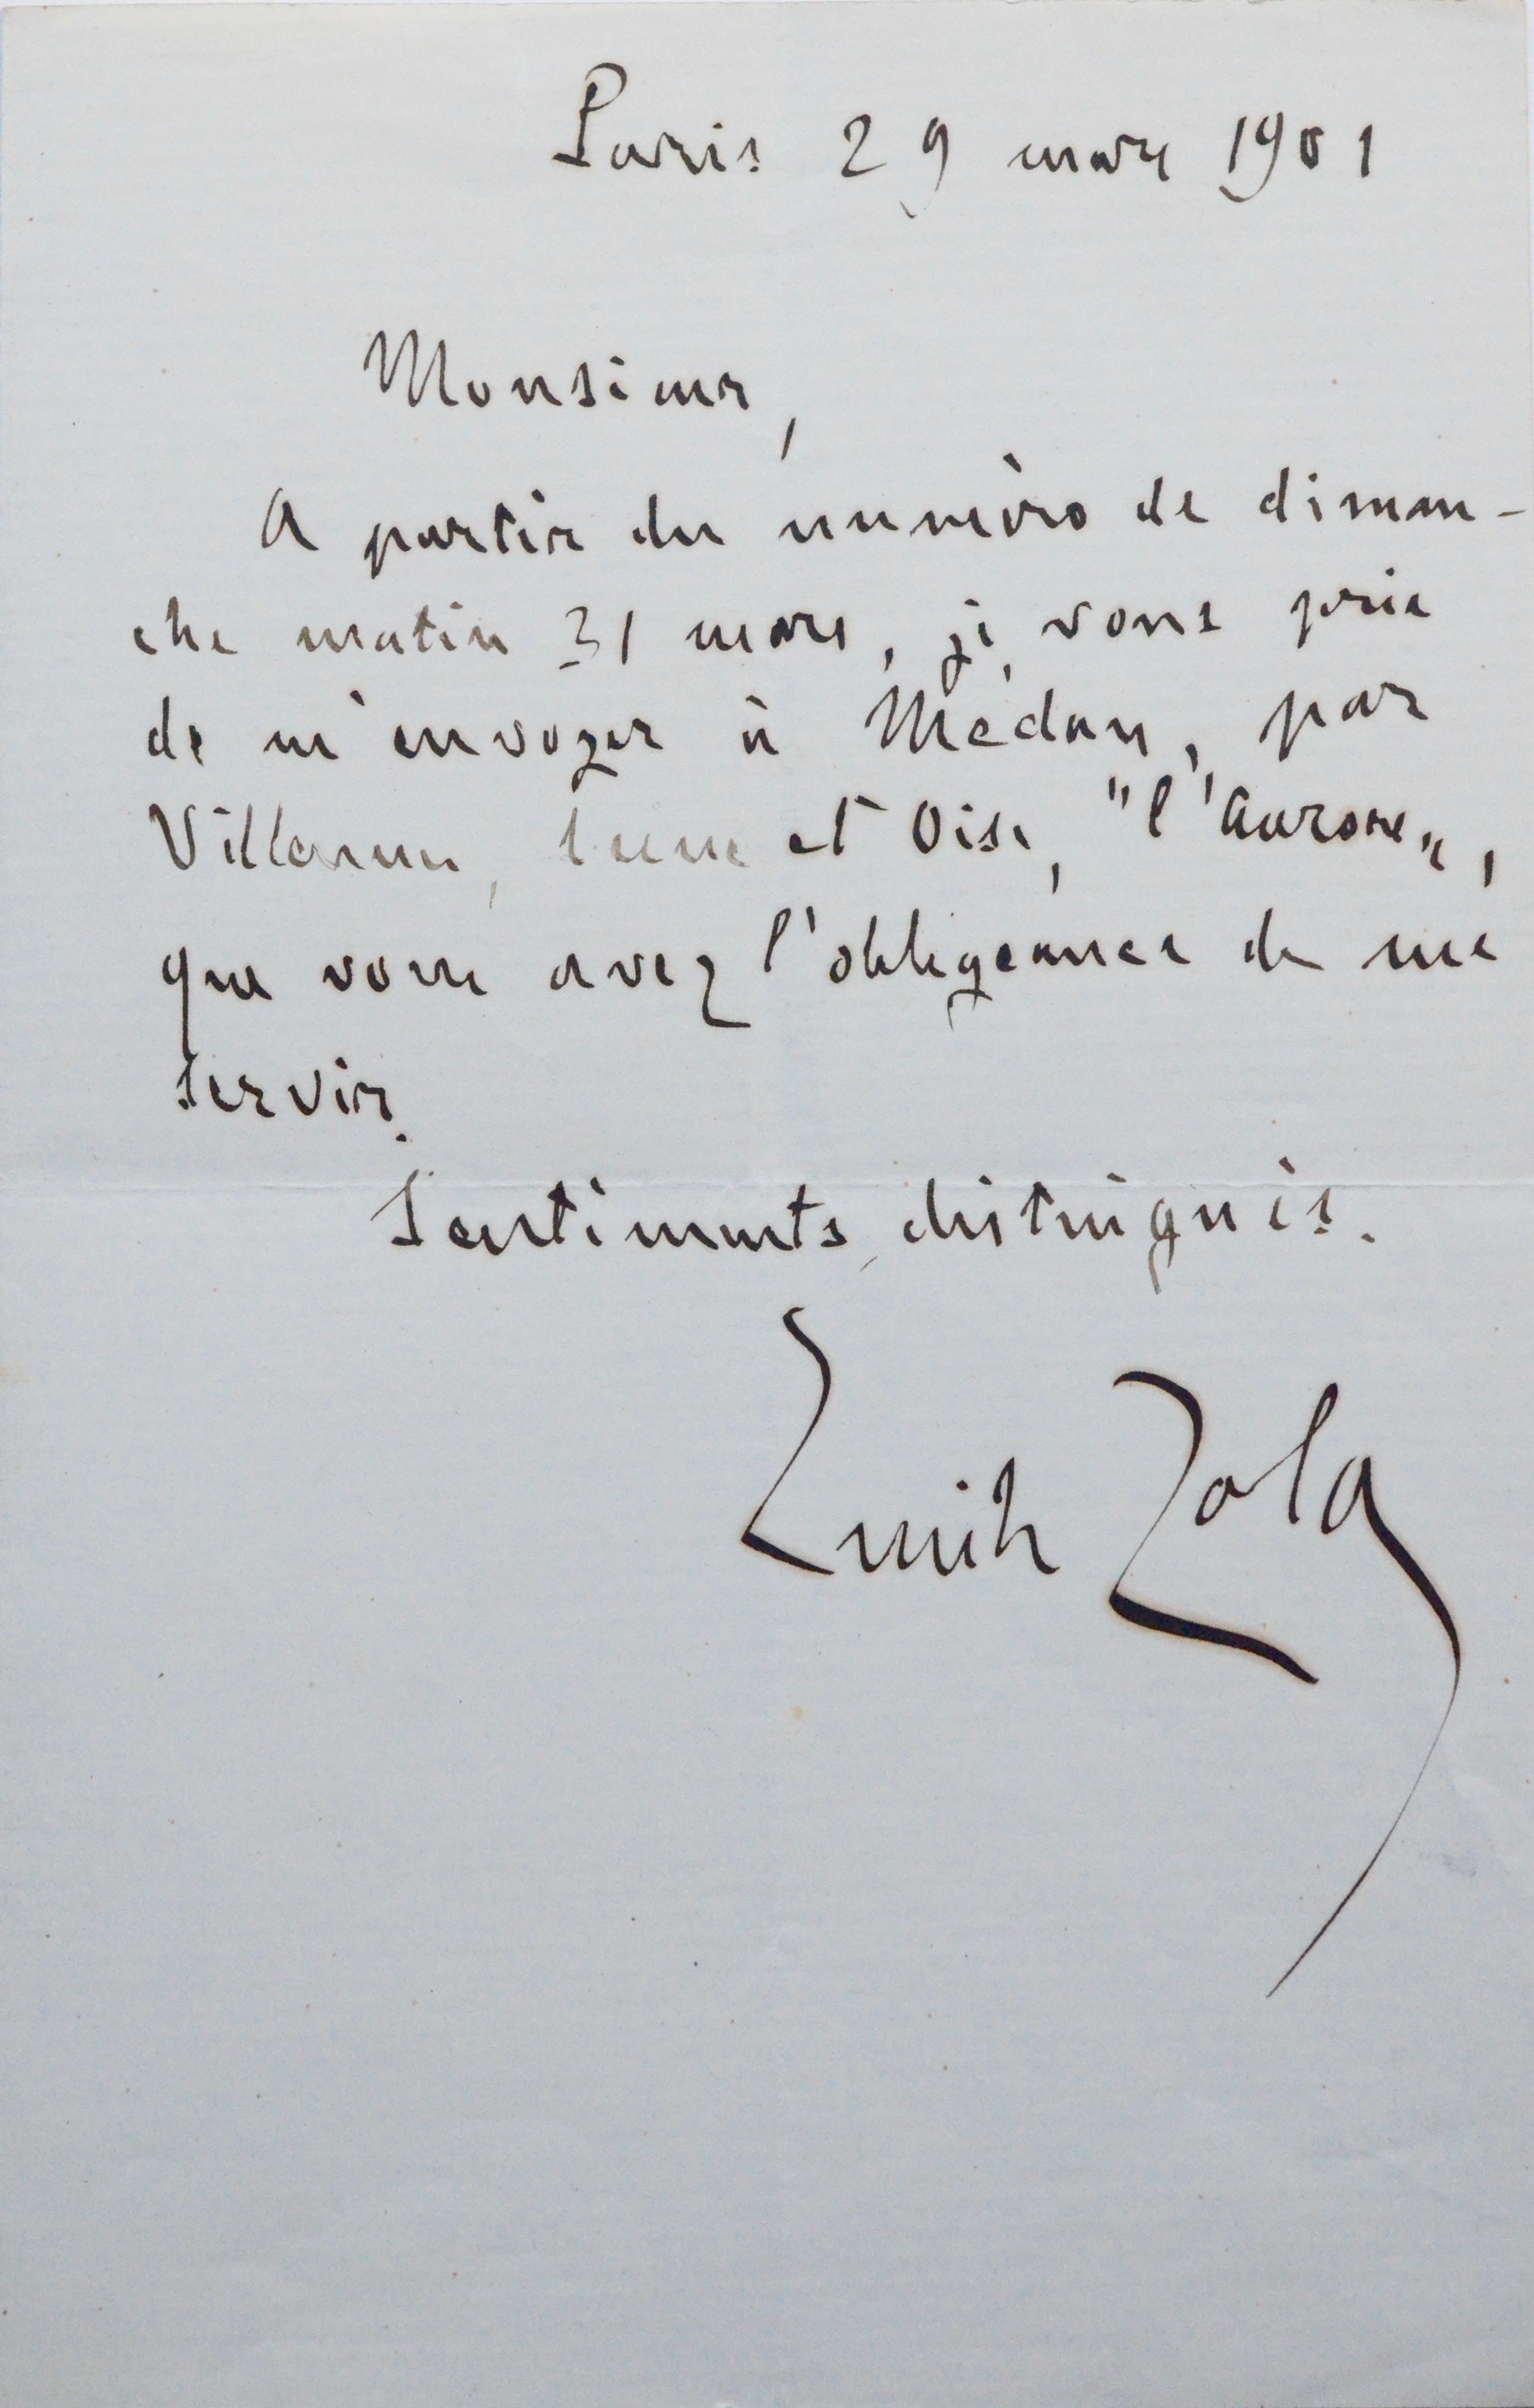 Paris 29 mars 1901
Monsieur,
A partir du numéro de diman-
che matin 31 mars, je vous prie
de m'envoyer à Médan, par
Villennes, Seine et Oise, "l'Aurore",
que vous avez l'obligeance de me
servir.
Sentiments distingués.
Emile Zola